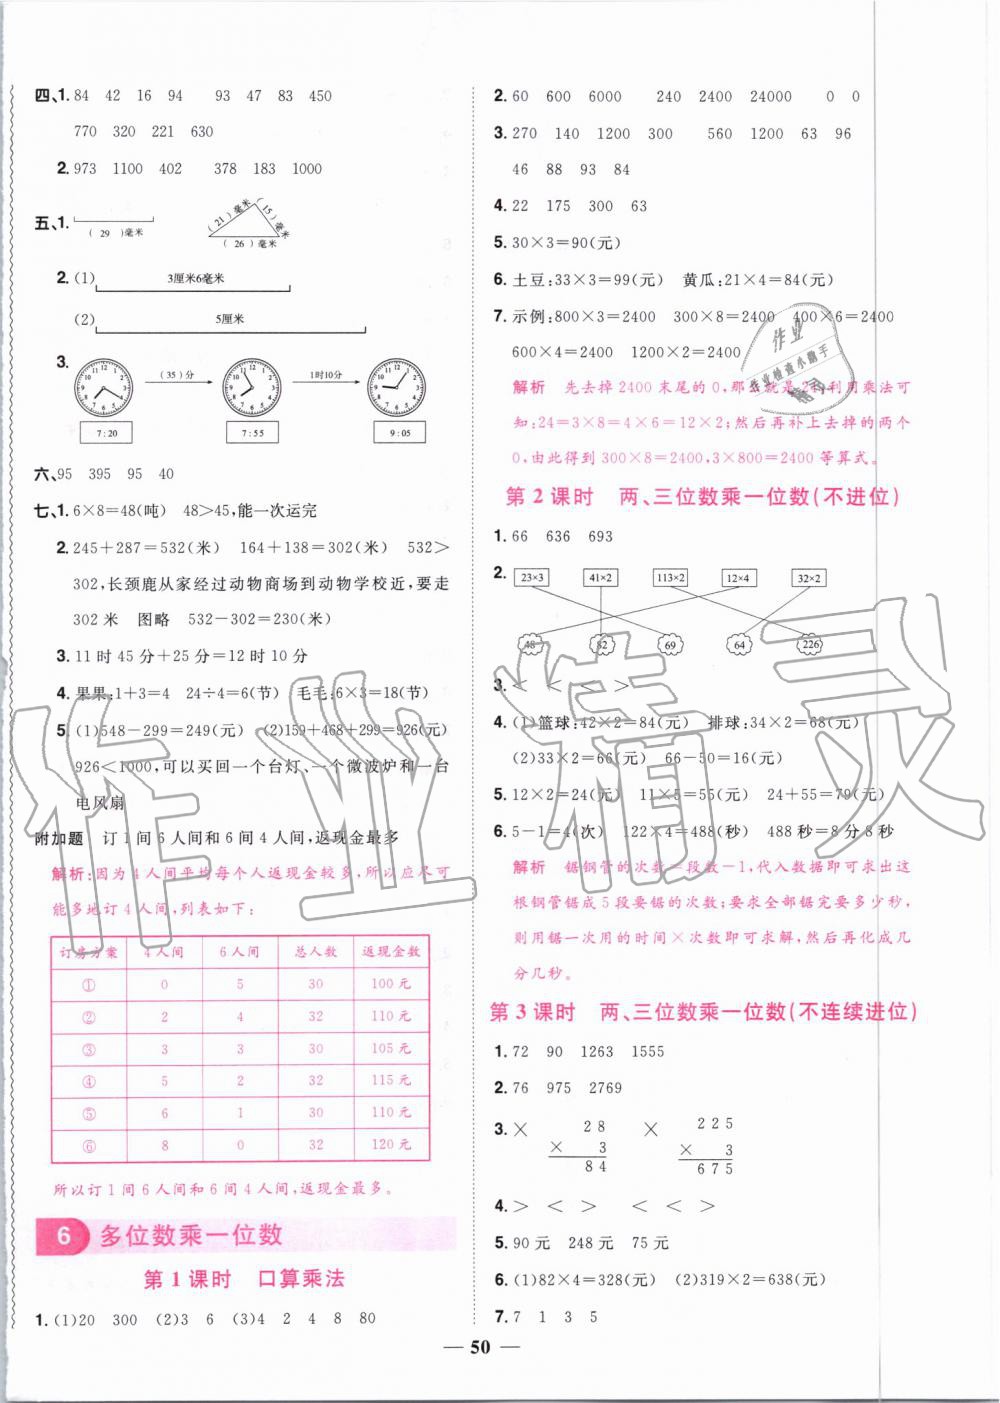 四、1. 84 42 16 94 93 47 83 450
770 320 221 630
2. 973 1100 402 378 183 1000
五、1. ( 29 )毫米 (21)毫米 (15)毫米 (26)毫米
2. (1) 3厘米6毫米
(2) 5厘米
3. (35)分 1时10分
7:20 7:55 9:05
六、95 395 95 40
七、1. 6×8=48(吨) 48>45,能一次运完
2. 245+287=532(米) 164+138=302(米) 532>
302,长颈鹿从家经过动物商场到动物学校近,要走
302米 图略 532-302=230(米)
3. 11时45分+25分=12时10分
4. 果果:1+3=4 24÷4=6(节) 毛毛:6×3=18(节)
5. (1)548-299=249(元) (2)159+468+299=926(元)
926<1000,可以买回一个台灯、一个微波炉和一台
电风扇
附加题 订1间6人间和6间4人间,返现金最多
解析:因为4人间平均每个人返现金较多,所以应尽可
能多地订4人间,列表如下:
订房方案 4人间 6人间 总人数 返现金数
① 0 5 30 100元
② 2 4 32 110元
③ 3 3 30 105元
④ 5 2 32 115元
⑤ 6 1 30 110元
⑥ 8 0 32 120元
所以订1间6人间和6间4人间,返现金最多。
6 多位数乘一位数
第1课时 口算乘法
1. (1)20 300 (2)3 6 (3)4 2 4 8 80
2. 60 600 6000 240 2400 24000 0 0
3. 270 140 1200 300 560 1200 63 96
46 88 93 84
4. 22 175 300 63
5. 30×3=90(元)
6. 土豆:33×3=99(元) 黄瓜:21×4=84(元)
7. 示例:800×3=2400 300×8=2400 400×6=2400
600×4=2400 1200×2=2400
解析 先去掉2400末尾的0,那么就是24,利用乘法可
知:24=3×8=4×6=12×2;然后再补上去掉的两个
0,由此得到300×8=2400,3×800=2400等算式。
第2课时 两、三位数乘一位数(不进位)
1. 66 636 693
2. 23×3 41×2 113×2 12×4 32×2
48 82 69 64 226
3. < < < >
4. (1)篮球:42×2=84(元) 排球:34×2=68(元)
(2)33×2=66(元) 66-50=16(元)
5. 12×2=24(元) 11×5=55(元) 24+55=79(元)
6. 5-1=4(次) 122×4=488(秒) 488秒=8分8秒
解析 锯钢管的次数=段数-1,代入数据即可求出这
根钢管锯成5段要锯的次数;要求全部锯完要多少秒,
则用锯一次用的时间×次数即可求解,然后再化成几
分几秒。
第3课时 两、三位数乘一位数(不连续进位)
1. 72 90 1263 1555
2. 76 975 2769
3. × 28 × 225
× 3 × 3
84 675
4. > < > < < >
5. 90元 248元 75元
6. (1)82×4=328(元) (2)319×2=638(元)
7. 7 1 3 5
50
作业精灵